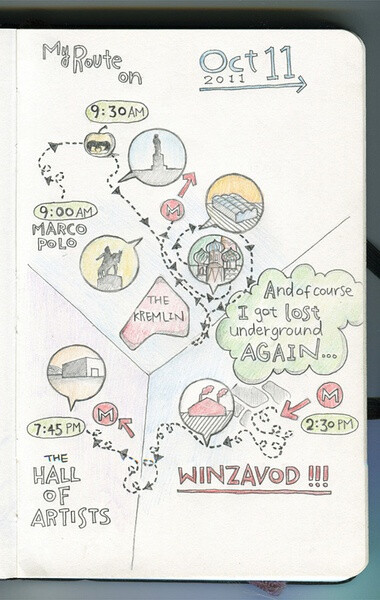 My Route
on
Oct 11
2011
9:30 AM
M
9:00 AM
MARCO
POLO
THE
KREMLIN
And of course
I got lost
underground
AGAIN...
M
2:30 PM
M
7:45 PM
WINZAVOD !!!
THE
HALL
OF
ARTISTS